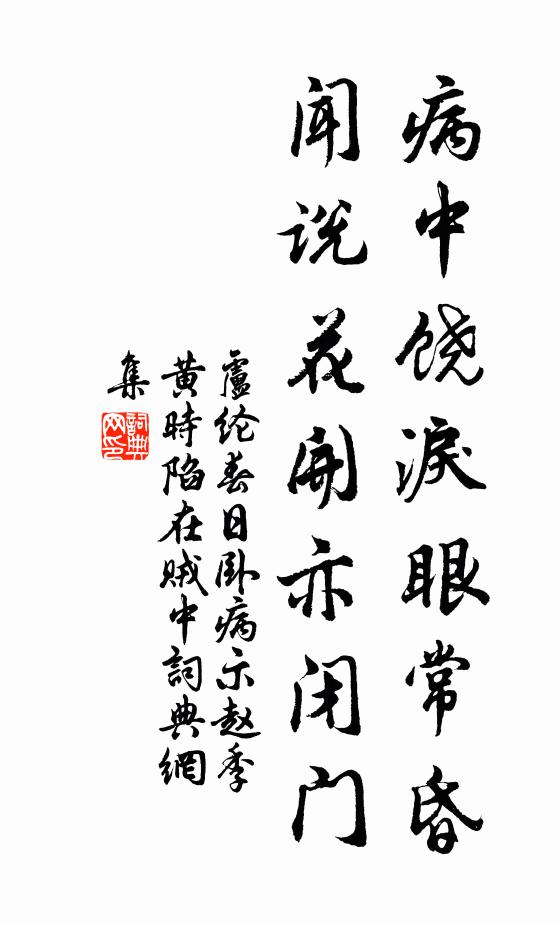 病中饶淚眼常昏
闻说花開亦闭门
盧纶春日卧病示赵季
黄時陷在贼中詞典網
集
詞典
网印